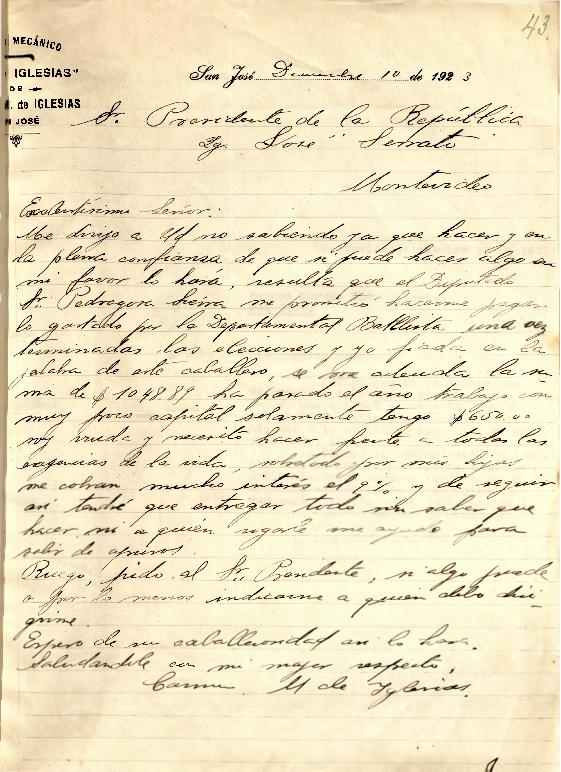 43.
MECÁNICO
IGLESIAS"
DE
M. de IGLESIAS
N JOSÉ
San José Diciembre 10 de 1923
Sr. Presidente de la República
Ig. José Serrato
Montevideo
Excelentísimo Señor:
Me dirijo a Ud no sabiendo ya que hacer y en
la plena confianza de que si puede hacer algo en
mi favor lo hará, resulta que el Diputado
Sr. Pedragosa Sierra me prometió hacerme pagar
lo gastado por la Departamental Batllista una vez
terminadas las elecciones y yo fiada en la
palabra de este caballero, se me adeuda la su
ma de $ 1048.89 ha pasado el año trabajo con
muy poco capital solamente tengo $ 600.00
soy viuda y necesito hacer frente a todas las
exigencias de la vida, sobretodo por mis hijas
me cobran mucho interés el 9%, y de seguir
así tendré que entregar todo sin saber que
hacer, ni a quién rogarle me ayude para
salir de apuros.
Ruego, pido al Sr. Presidente, si algo puede
o por lo menos indicarme a quien debo diri
girme.
Espero de su caballerosidad así lo hará.
Saludandole con mi mayor respeto,
Carmen M de Iglesias.